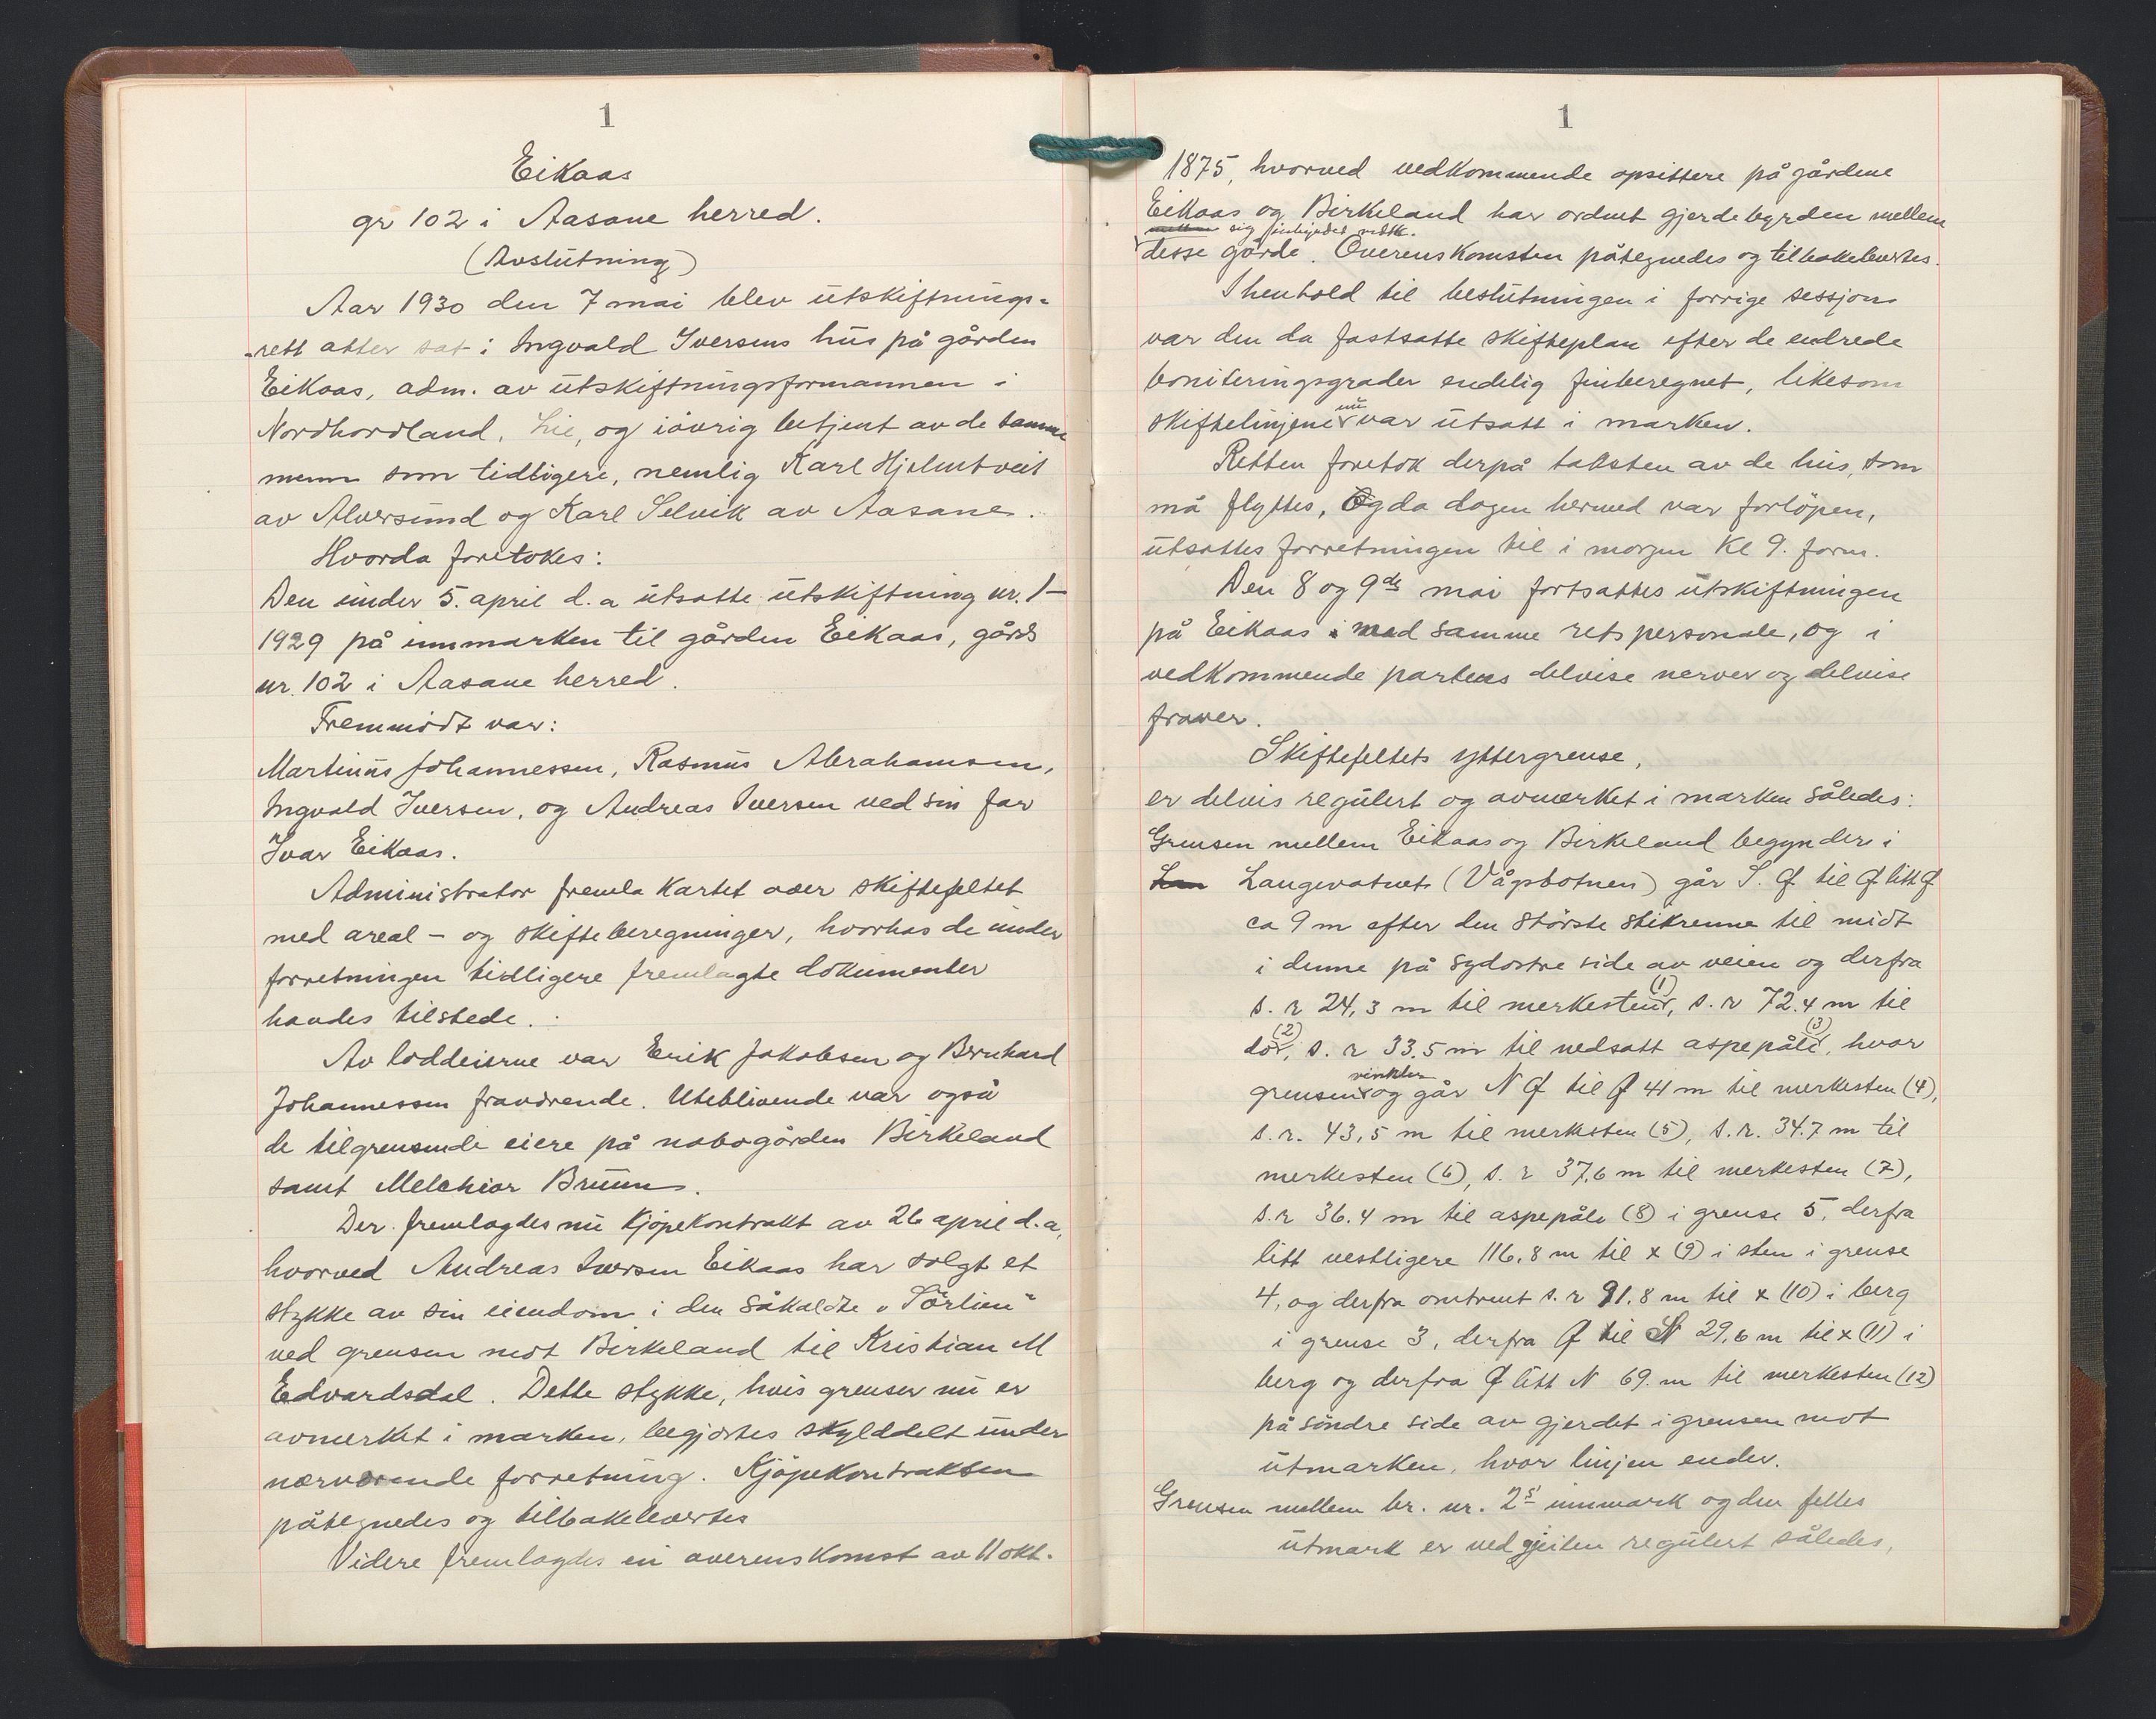 1
Eikaas
gr 102 i Aasane herred.
(Avslutning)
Aar 1930 den 7 mai blev utskiftnings-
-rett atter sat i Ingvald Iversens hus på gården
Eikaas, adm. av utskiftningsformannen i
Nordhordland, Lie, og iøvrig betjent av de samme
menn som tidligere, nemlig Karl Hjelmtveit
av Alversund og Karl Selvik av Aasane.
Hvorda foretokes:
Den under 5. april d.a utsatte utskiftning nr. 1-
1929 på innmarken til gården Eikaas, gårds
nr. 102 i Aasane herred.
Fremmødt var:
Martinus Johannessen, Rasmus Abrahamsen,
Ingvald Iversen, og Andreas Iversen ved sin far
Ivar Eikaas.
Administrator fremla kartet over skiftefeltet
med areal- og skifteberegninger, hvorhos de under
forretningen tidligere fremlagte dokumenter
havdes tilstede.
Av loddeierne var Erik Jakobsen og Bernhard
Johannessen fraværende. Uteblivende var også
de tilgrensende eiere på nabogården Birkeland
samt Melchior Bruun.
Der fremlagdes nu kjøpekontrakt av 26 april d.a,
hvorved Andreas Iversen Eikaas har solgt et
stykke av sin eiendom i den såkaldte „Sørlien"
ved grensen mot Birkeland til Kristian M
Edvardsdal. Dette stykke, hvis grenser nu er
avmerket i marken, begjærtes skylddelt under
nærværende forretning. Kjøpekontrakten
påtegnedes og tilbakelevertes
Videre fremlagdes en overenskomst av 11 okt.
1
1875, hvorved vedkommende opsittere på gårdene
Eikaas og Birkeland har ordnet gjerdebyrden mellem
mellem sig vedk.
desse gårde. Overenskomsten påtegnedes og tilbakelevertes.
I henhold til beslutningen i forrige sessjon
var den da fastsatte skifteplan efter de endrede
boniteringsgrader endelig finberegnet, likesom
skiftelinjene nu var utsatt i marken.
Retten foretok derpå taksten av de hus, som
må flyttes, Og da dagen hermed var forløpen,
utsattes forretningen til i morgen Kl 9. form.
Den 8 og 9de mai fortsattes utskiftningen
på Eikaas med samme retspersonale, og i
vedkommende parters delvise nerver og delvise
fraver.
Skiftefeltets yttergrense,
er delvis regulert og avmerket i marken således:
Grensen mellem Eikaas og Birkeland begynder i
Lan Langevatnet (Vågsbotnen) går S. Ø til Ø litt Ø
ca 9 m efter den største stikrenne til midt
i denne på sydøstre side av veien og derfra
s. r 24,3 m til merkesten (1), s. r 72.4 m til
do (2), s. r 33.5 m til nedsatt aspepåle (3), hvor
grensen vinkler og går N Ø til Ø 41 m til merkesten (4),
s. r. 43,5 m til merkesten (5), s. r. 34.7 m til
merkesten (6), s. r 37,6 m til merkesten (7),
s. r 36.4 m til aspepåle (8) i grense 5, derfra
litt vestligere 116,8 m til x (9) i sten i grense
4, og derfra omtrent s. r 91.8 m til x (10) i berg
i grense 3, derfra Ø til N 29,6 m til x (11) i
berg og derfra Ø litt N 69. m til merkesten (12)
på søndre side av gjerdet i grensen mot
utmarken, hvor linjen ender.
Grensen mellem br. nr. 2s' innmark og den felles
utmark er ved gjeilen regulert således,